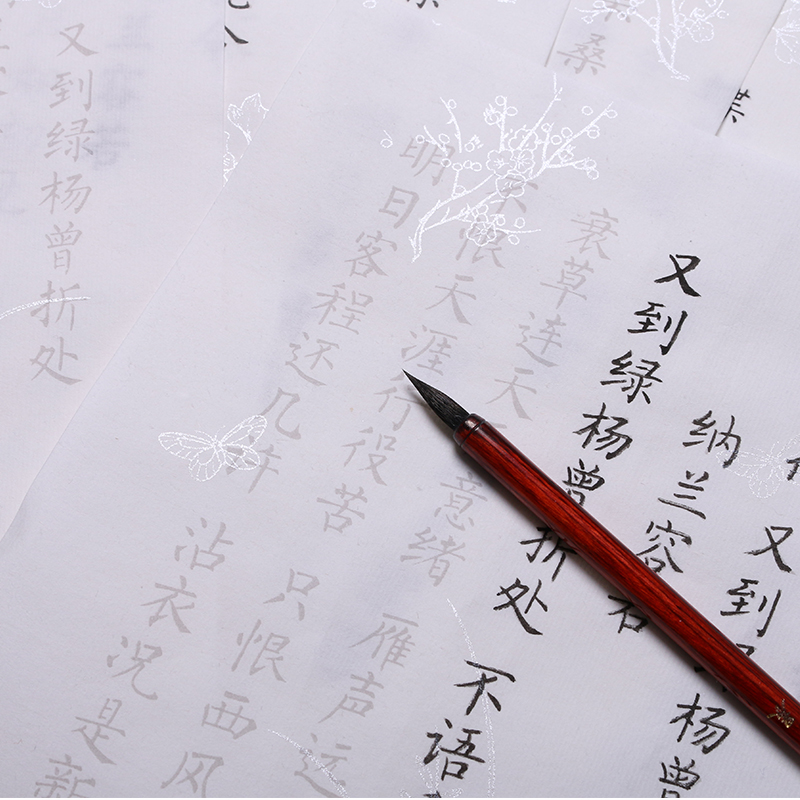 又到杨曾
纳兰容
又到绿杨曾折处 不语
衰草连天意绪 雁声远
不恨天涯行役苦 只恨西风
明日客程还几许 沾衣况是新
又到绿杨曾折处
桑